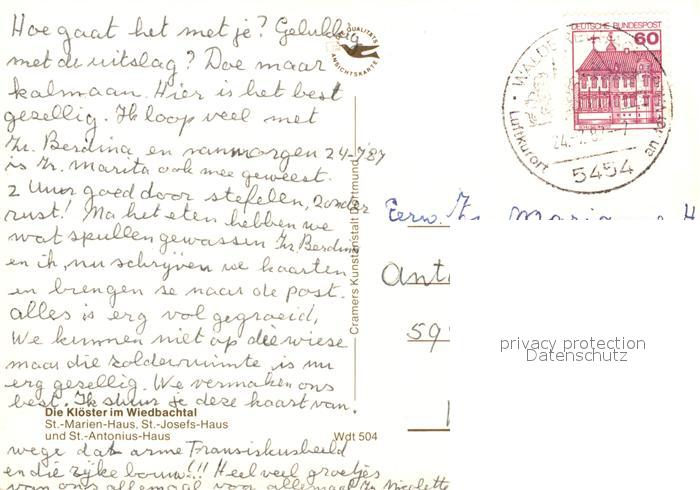 Hoe gaat het met je? Gelukkig
met de uitslag? Doe maar
kalmaan. Hier is het best
gezellig. Ik loop veel met
Zr. Berdina en vanmorgen 24-7'87
is Zr. Marita ook mee geweest.
2 Uur goed door stefelen, zonder
rust! Na het eten hebben we
wat spullen gewassen Zr Berdina
en ik, nu schrijven we kaarten
en brengen ze naar de post.
alles is erg vol gegroeid,
We kunnen niet op die wiese
maar die zolderruimte is nu
erg gezellig. We vermaken ons
best. Ik stuur je deze kaart van
Die Klöster im Wiedbachtal
St.-Marien-Haus, St.-Josefs-Haus
und St.-Antonius-Haus
Wdt 504
wege dat arme Fransiskusbeeld
en die rijke bouw!!! Heel veel groetjes
van ons allemaal voor allemaal Zr Nicolette
QUALITÄTS
ANSICHTSKARTE
Cramers Kunstanstalt Dortmund
DEUTSCHE BUNDESPOST
60
Luftkurort
5454
an
Eerw. Zr Maria
Ant
59
privacy protection
Datenschutz